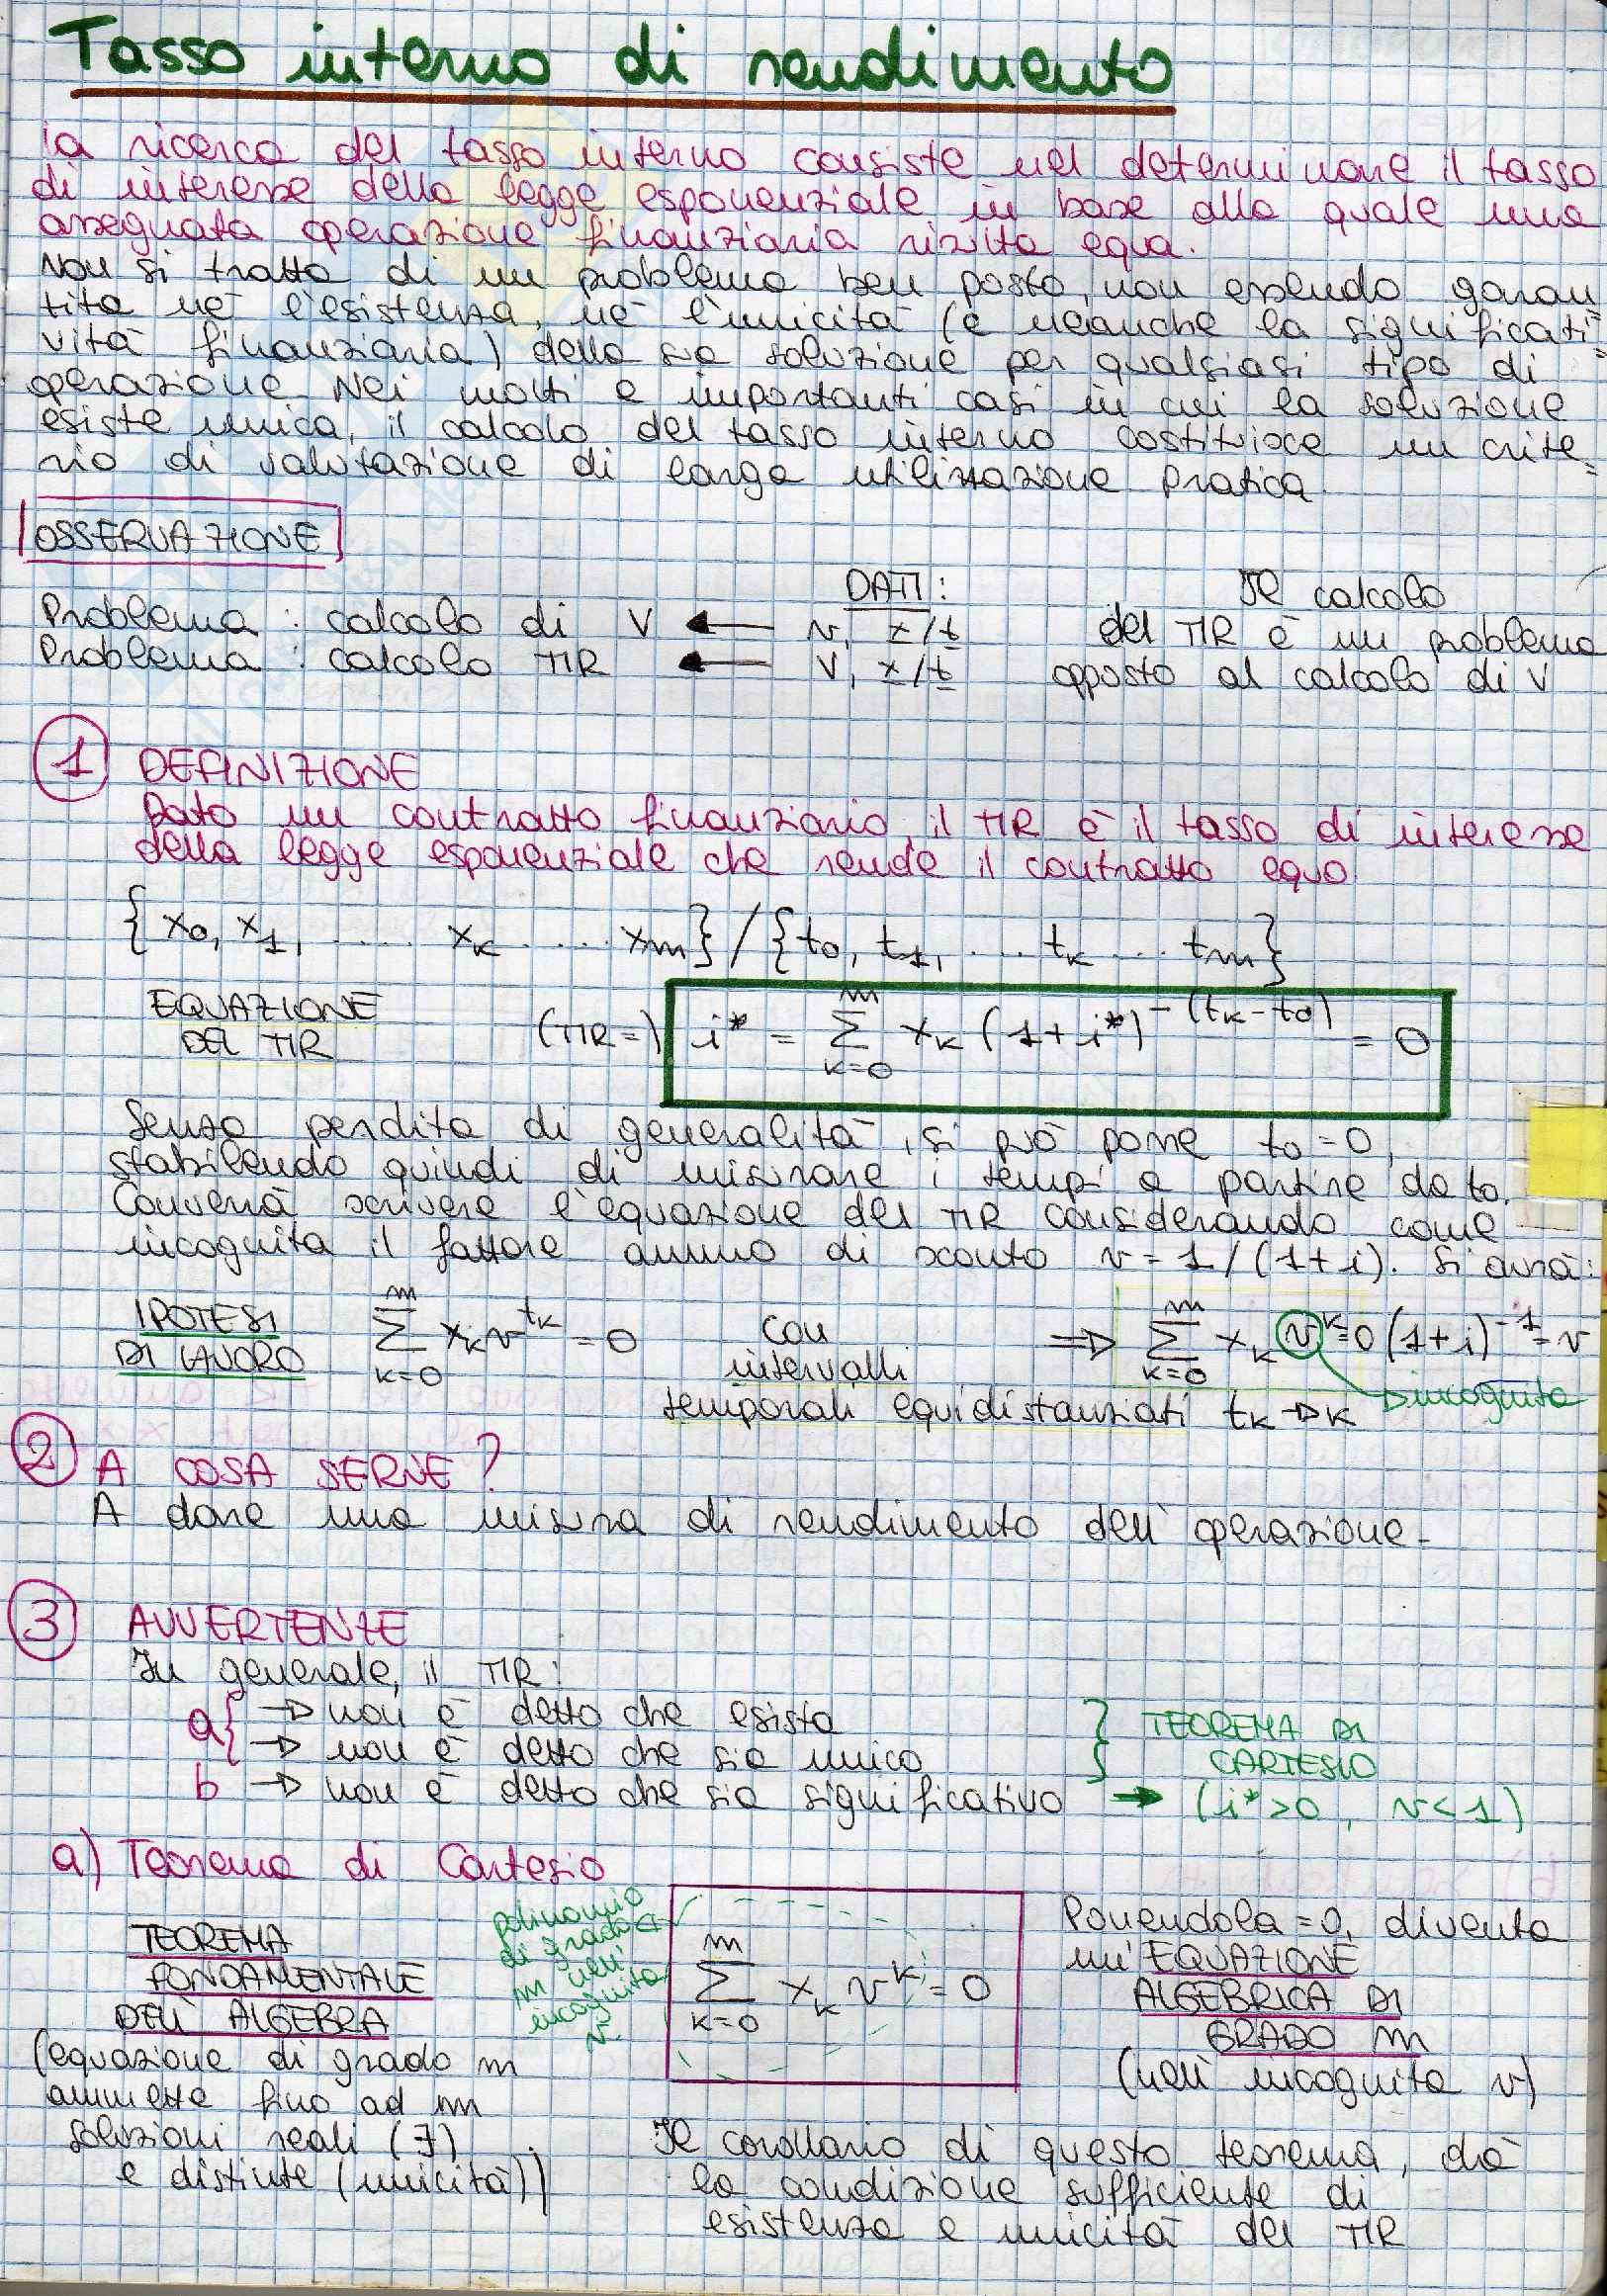 Tasso interno di rendimento
la ricerca del tasso interno consiste nel determinare il tasso
di interesse della legge esponenziale in base alla quale una
assegnata operazione finanziaria risulta equa.
Non si tratta di un problema ben posto, non essendo garan=
tita né l'esistenza, né l'unicità (e neanche la significati=
vità finanziaria) della sua soluzione per qualsiasi tipo di
operazione. Nei molti e importanti casi in cui la soluzione
esiste unica, il calcolo del tasso interno costituisce un crite=
rio di valutazione di larga utilizzazione pratica.
OSSERVAZIONE
DATI: Il calcolo
Problema : calcolo di V ← v, x/t del TIR è un problema
Problema : calcolo TIR ← V, x/t opposto al calcolo di V
1 DEFINIZIONE
Dato un contratto finanziario, il TIR è il tasso di interesse
della legge esponenziale che rende il contratto equo.
{x0, x1, .... xk .... xm} / {t0, t1, ... tk ... tm}
EQUAZIONE DEL TIR (TIR=) i* = Σ_{k=0}^{m} xk (1+i*)^-(tk-t0) = 0
Senza perdita di generalità, si può porre t0=0,
stabilendo quindi di misurare i tempi a partire da t0.
Converrà scrivere l'equazione del TIR considerando come
incognita il fattore annuo di sconto v=1/(1+i). Si avrà:
IPOTESI DI LAVORO Σ_{k=0}^{m} xk v^tk = 0 con intervalli ⇒ Σ_{k=0}^{m} xk v^k = 0 (1+i)^-1 = v
incognita
temporali equidistanziati tk → k
2 A COSA SERVE?
A dare una misura di rendimento dell'operazione.
3 AVVERTENZE
In generale, il TIR:
a { → non è detto che esista } TEOREMA DI
→ non è detto che sia unico CARTESIO
b → non è detto che sia significativo → (i*>0, v<1)
a) Teorema di Cartesio
TEOREMA
FONDAMENTALE
DELL'ALGEBRA
(equazione di grado m
ammette fino ad m
soluzioni reali (∃)
e distinte (unicità))
polinomio
di grado
m nell'
incognita
v
Σ_{k=0}^{m} xk v^k = 0
Ponendola =0, diventa
un'EQUAZIONE
ALGEBRICA DI
GRADO m
(nell'incognita v)
Il corollario di questo teorema, dà
la condizione sufficiente di
esistenza e unicità del TIR